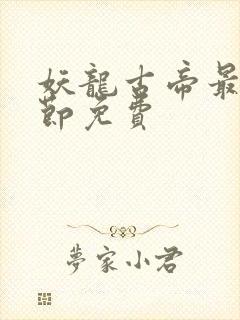 妖龍古帝最
節免費
夢家小君